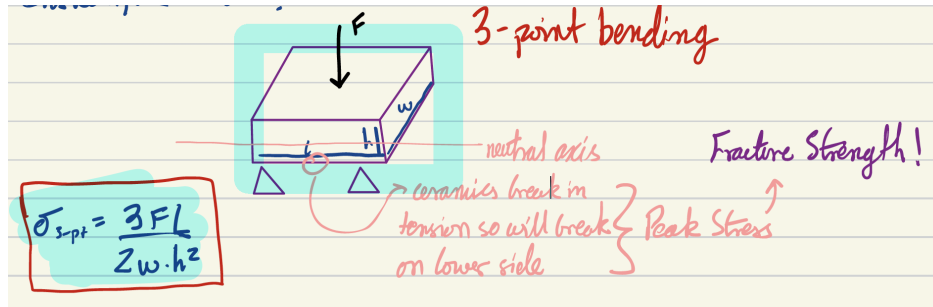 3-point bending
F
w
L
h
neutral axis
Fracture Strength!
ceramics break in
tension so will break
on lower side
Peak Stress
σ3-pt = 3FL
2w·h²